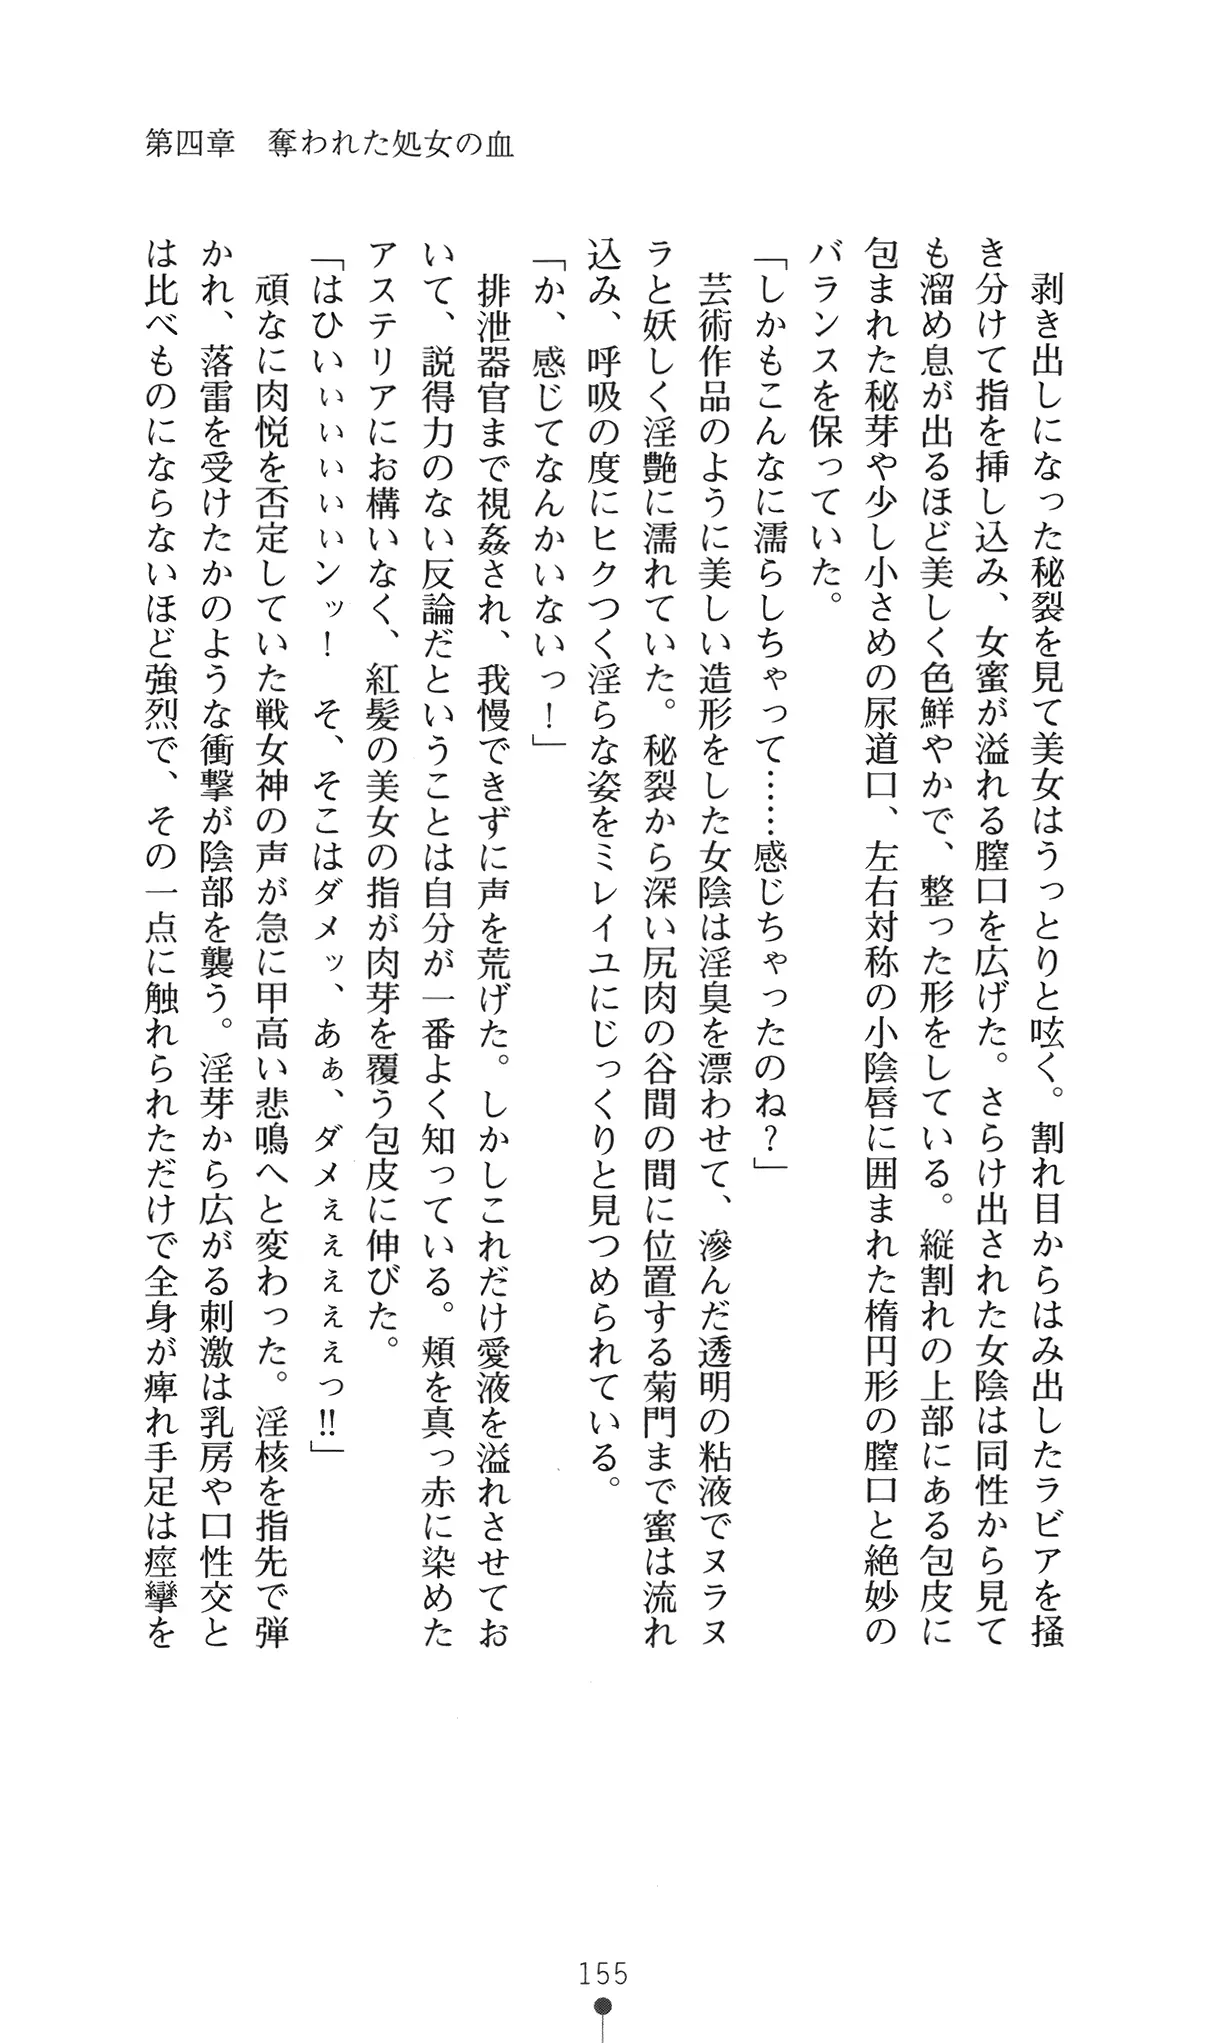 第四章　奪われた処女の血
　剥き出しになった秘裂を見て美女はうっとりと呟く。割れ目からはみ出したラビアを掻
き分けて指を挿し込み、女蜜が溢れる膣口を広げた。さらけ出された女陰は同性から見て
も溜め息が出るほど美しく色鮮やかで、整った形をしている。縦割れの上部にある包皮に
包まれた秘芽や少し小さめの尿道口、左右対称の小陰唇に囲まれた楕円形の膣口と絶妙の
バランスを保っていた。
「しかもこんなに濡らしちゃって……感じちゃったのね？」
　芸術作品のように美しい造形をした女陰は淫臭を漂わせて、滲んだ透明の粘液でヌラヌ
ラと妖しく淫艶に濡れていた。秘裂から深い尻肉の谷間の間に位置する菊門まで蜜は流れ
込み、呼吸の度にヒクつく淫らな姿をミレイユにじっくりと見つめられている。
「か、感じてなんかいないっ！」
　排泄器官まで視姦され、我慢できずに声を荒げた。しかしこれだけ愛液を溢れさせてお
いて、説得力のない反論だということは自分が一番よく知っている。頬を真っ赤に染めた
アステリアにお構いなく、紅髪の美女の指が肉芽を覆う包皮に伸びた。
「はひぃぃぃぃぃンッ！　そ、そこはダメッ、あぁ、ダメぇぇぇぇぇっ!!」
　頑なに肉悦を否定していた戦女神の声が急に甲高い悲鳴へと変わった。淫核を指先で弾
かれ、落雷を受けたかのような衝撃が陰部を襲う。淫芽から広がる刺激は乳房や口性交と
は比べものにならないほど強烈で、その一点に触れられただけで全身が痺れ手足は痙攣を
155